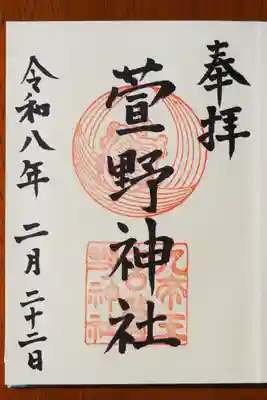 奉拝
萱野神社
令和八年 二月 二十二日